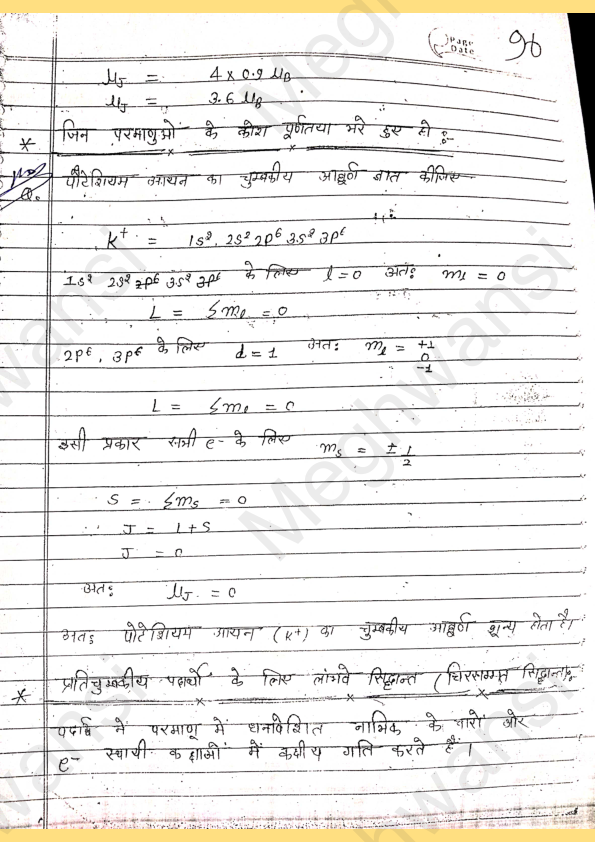 Page
Date
96
μJ = 4 x 0.9 μB
μJ = 3.6 μB
* जिन परमाणुओं के कोश पूर्णतया भरे हुए हो :-
Q. पौटेशियम आयन का चुम्बकीय आघूर्ण ज्ञात कीजिए
K+ = 1s², 2s² 2p⁶ 3s² 3p⁶
1s² 2s² 2p⁶ 3s² 3p⁶ के लिए l=0 अतः ml = 0
L = Σml = 0
2p⁶, 3p⁶ के लिए d=1 अतः ml = +1
0
-1
L = Σml = 0
इसी प्रकार सभी e- के लिए ms = ± 1/2
S = Σms = 0
J = L+S
J = 0
अतः μJ = 0
अतः पोटेशियम आयन (K+) का चुम्बकीय आघूर्ण शून्य होता है।
* प्रतिचुम्बकीय पदार्थो के लिए लांगवे सिद्धान्त (चिरसम्मत सिद्धान्त):-
पदार्थ में परमाणु में धनावेशित नाभिक के चारों ओर
e- स्थायी कक्षाओं में कक्षीय गति करते हैं।
Meghwansi
Meghwansi
Meghwansi
Meghwansi